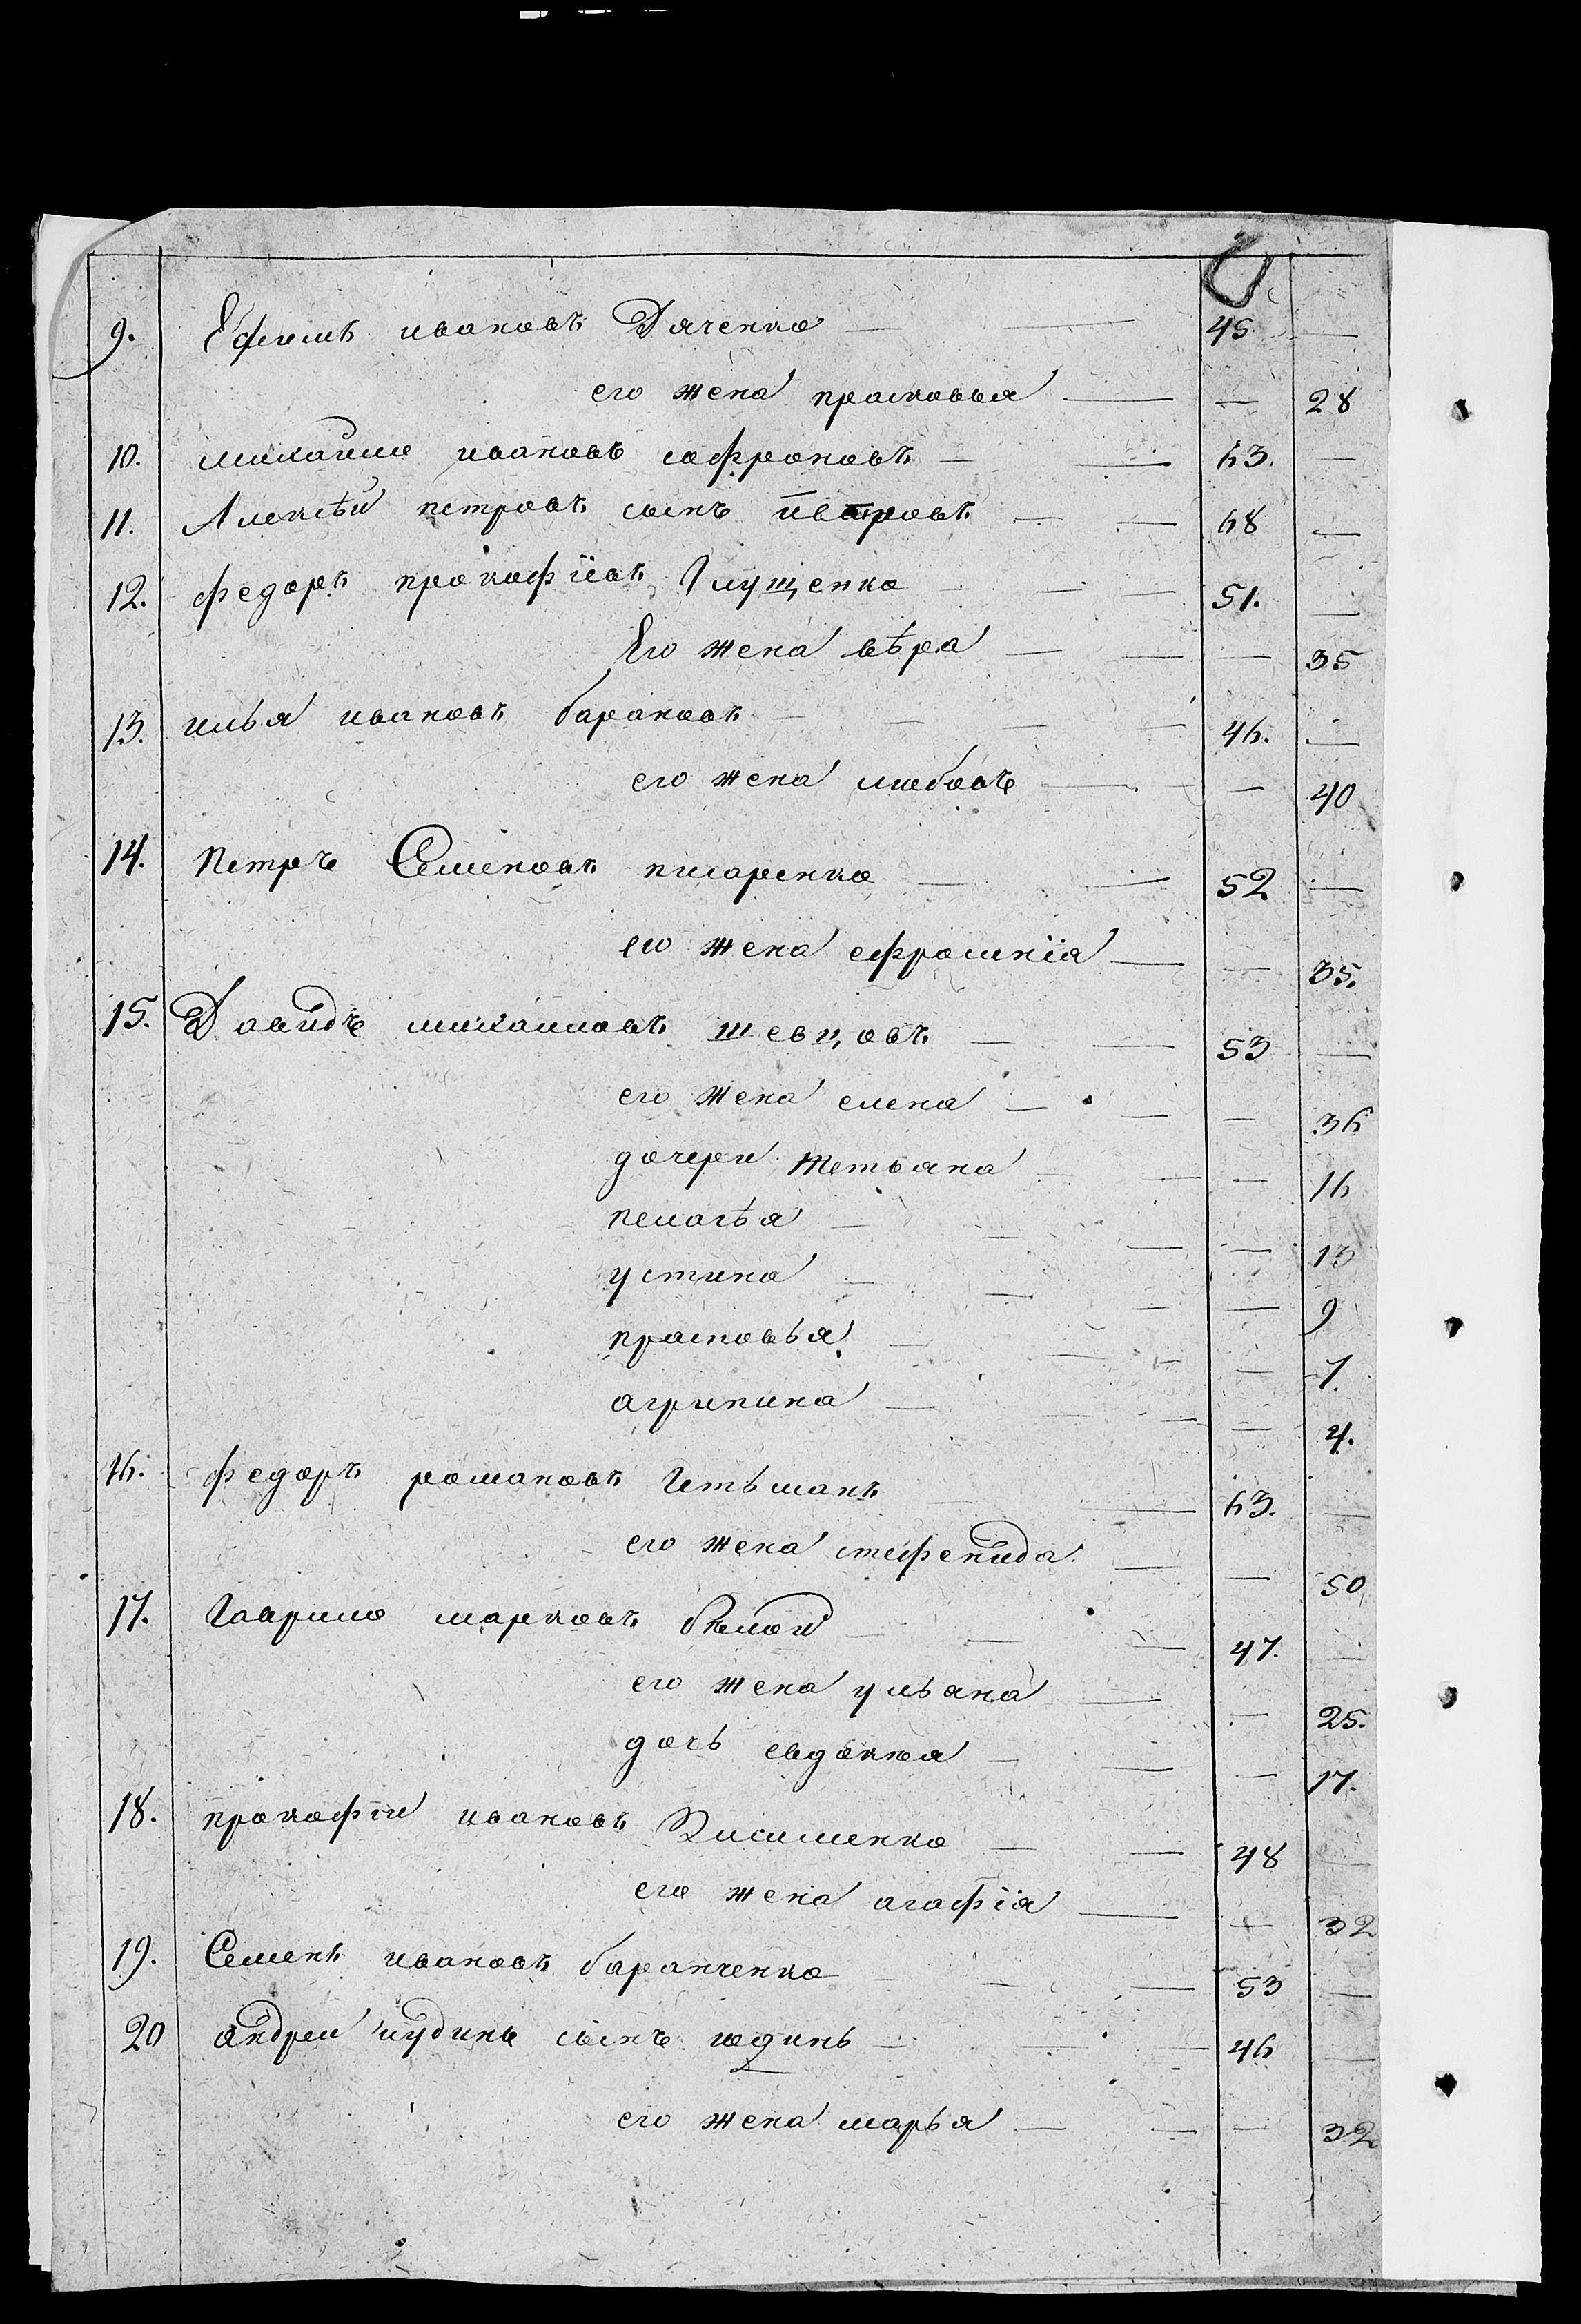 9. Ефимъ ивановъ Дяченко — — 45. —
его жена прасковья — — 28
10. михаило ивановъ софроновъ — — 63. —
11. Алексѣй петровъ сынъ — — 68 —
12. федоръ прокофіевъ Глущенко — — — 51. —
Его жена вѣра — — — 35
13. илья ивановъ барановъ — — — — 46. —
его жена любовъ — — — 40
14. Петръ Семеновъ писаренко — — 52 —
его жена ефросинія — — 35.
15. Давидъ михаиловъ шевцовъ — — 53 —
его жена елена — — — 36
дочери тетьяна — — — 16
пелагѣя — — — — 13
устина — — — — 9
прасковья — — — — 7.
агрипина — — — — 4.
16. федоръ романовъ Гетьманъ — — 63. —
его жена стефенида — — 50
17. Гаврило марковъ бѣлой — — — 47. —
его жена ульяна — — 25.
дочь евдокия — — — 17.
18. прокофій ивановъ Кисиленко — — 48 —
его жена агафія — — 32
19. Семенъ ивановъ баранченко — — — 53 —
20 андреи іудинъ сынъ юдинъ — — — 46 —
его жена марья — — — 32